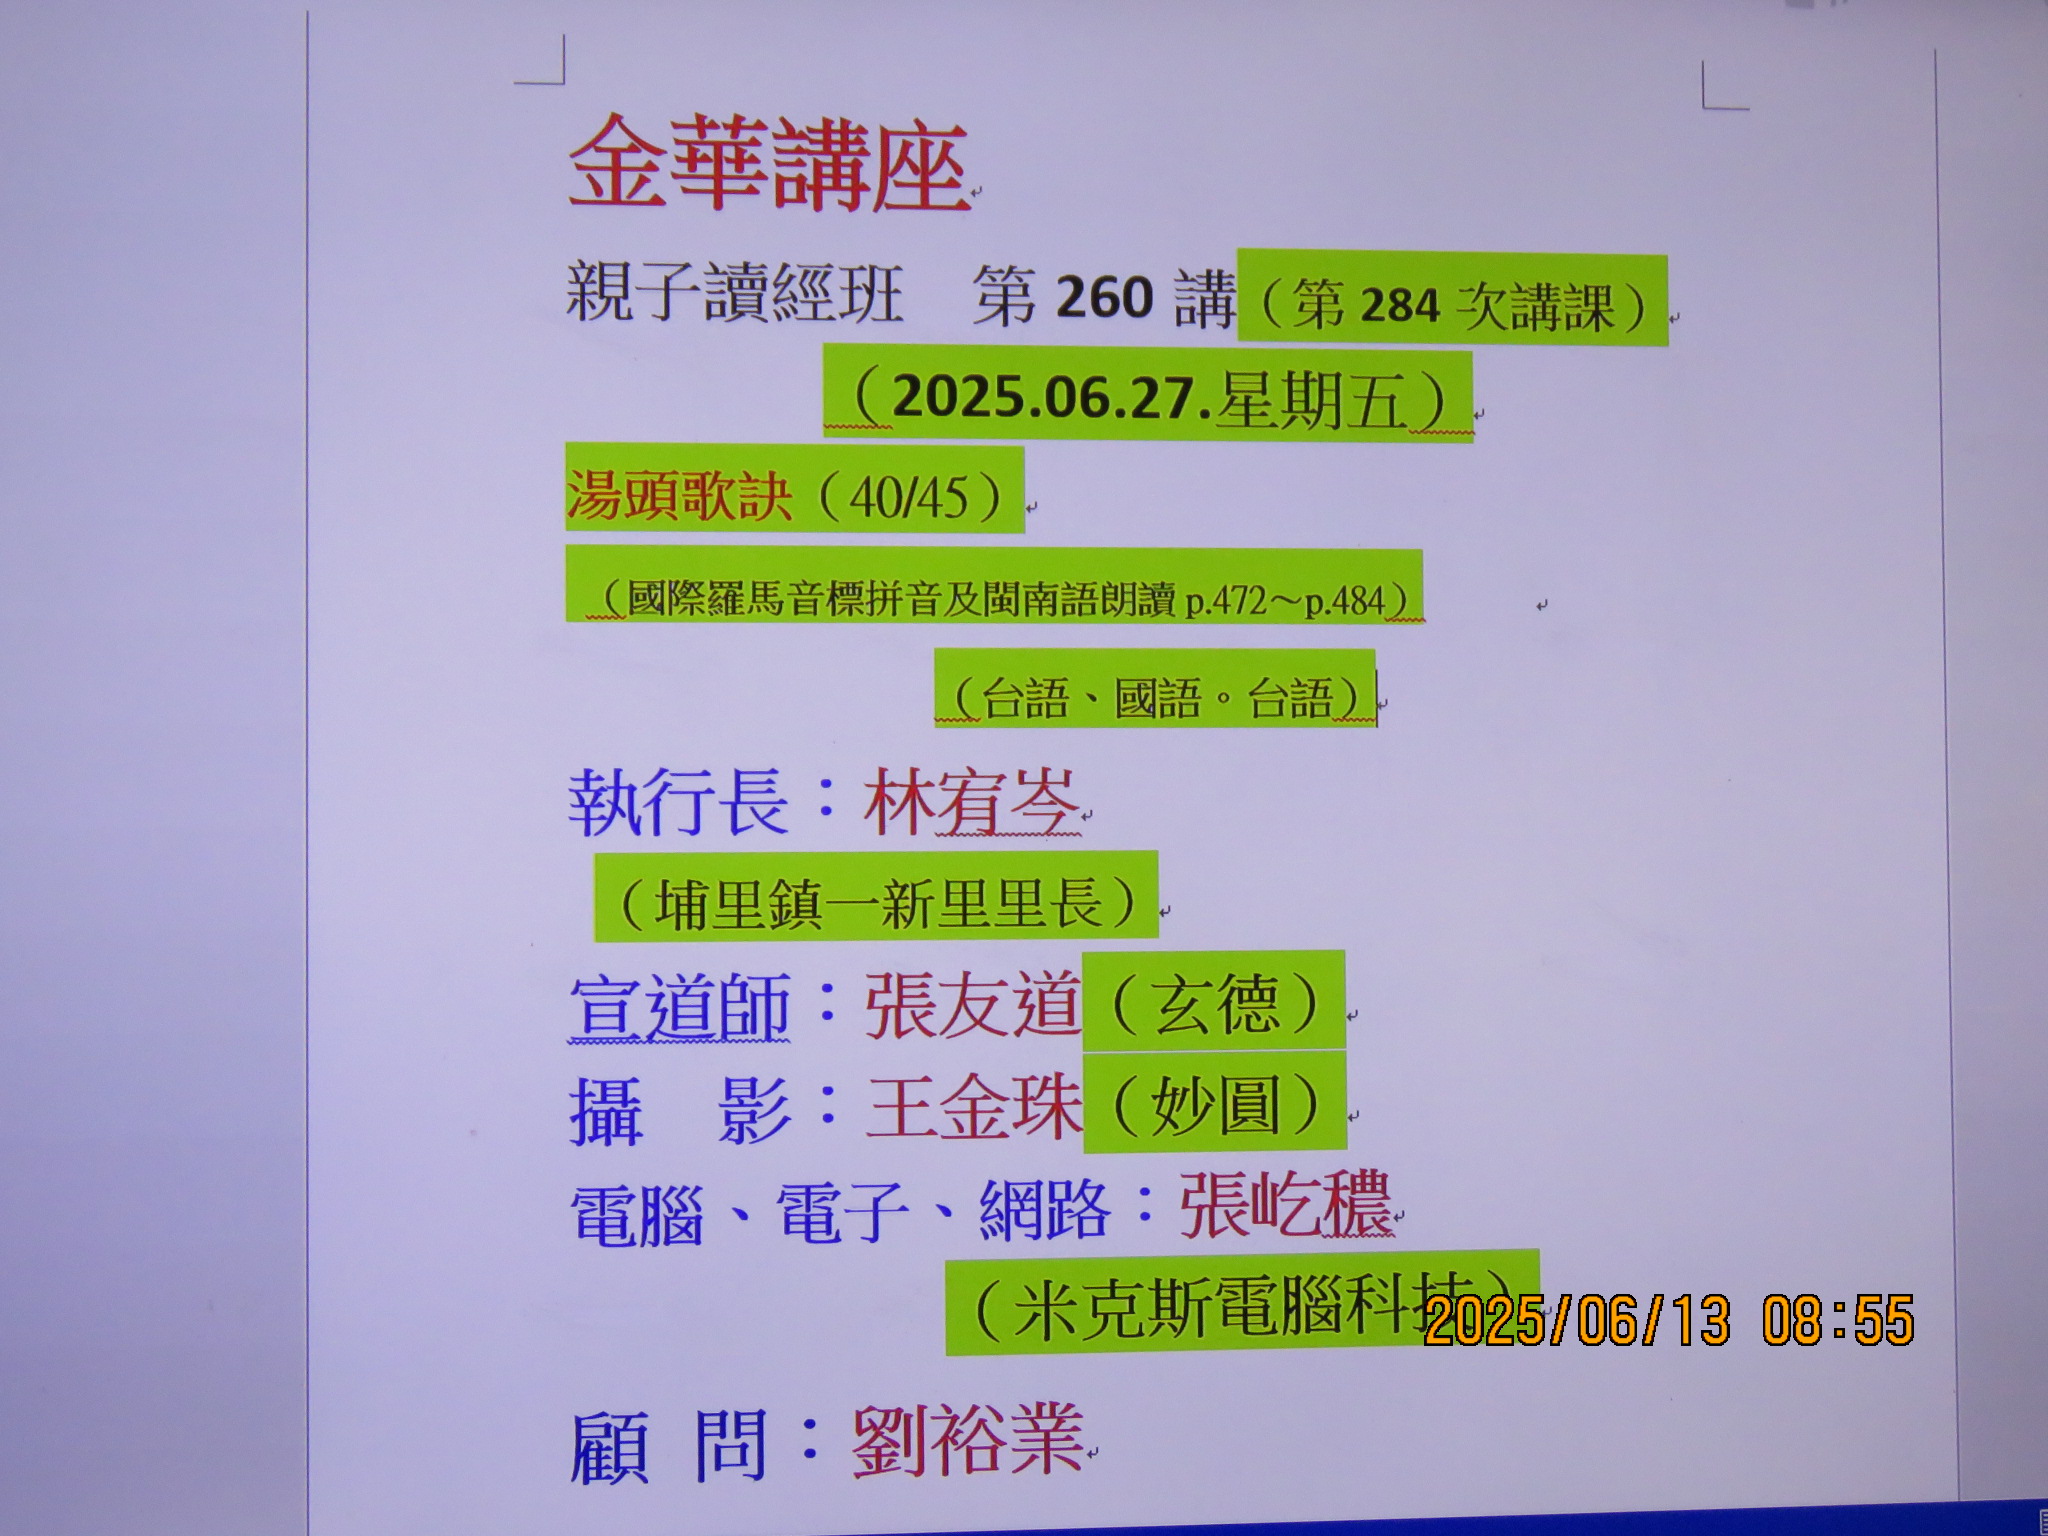 金華講座
親子讀經班　第 260 講（第 284 次講課）
（2025.06.27.星期五）
湯頭歌訣（40/45）
（國際羅馬音標拼音及閩南語朗讀 p.472～p.484）
（台語、國語。台語）
執行長：林宥岑
（埔里鎮一新里里長）
宣道師：張友道（玄德）
攝　影：王金珠（妙圓）
電腦、電子、網路：張屹穠
（米克斯電腦科技）
2025/06/13 08:55
顧 問：劉裕業